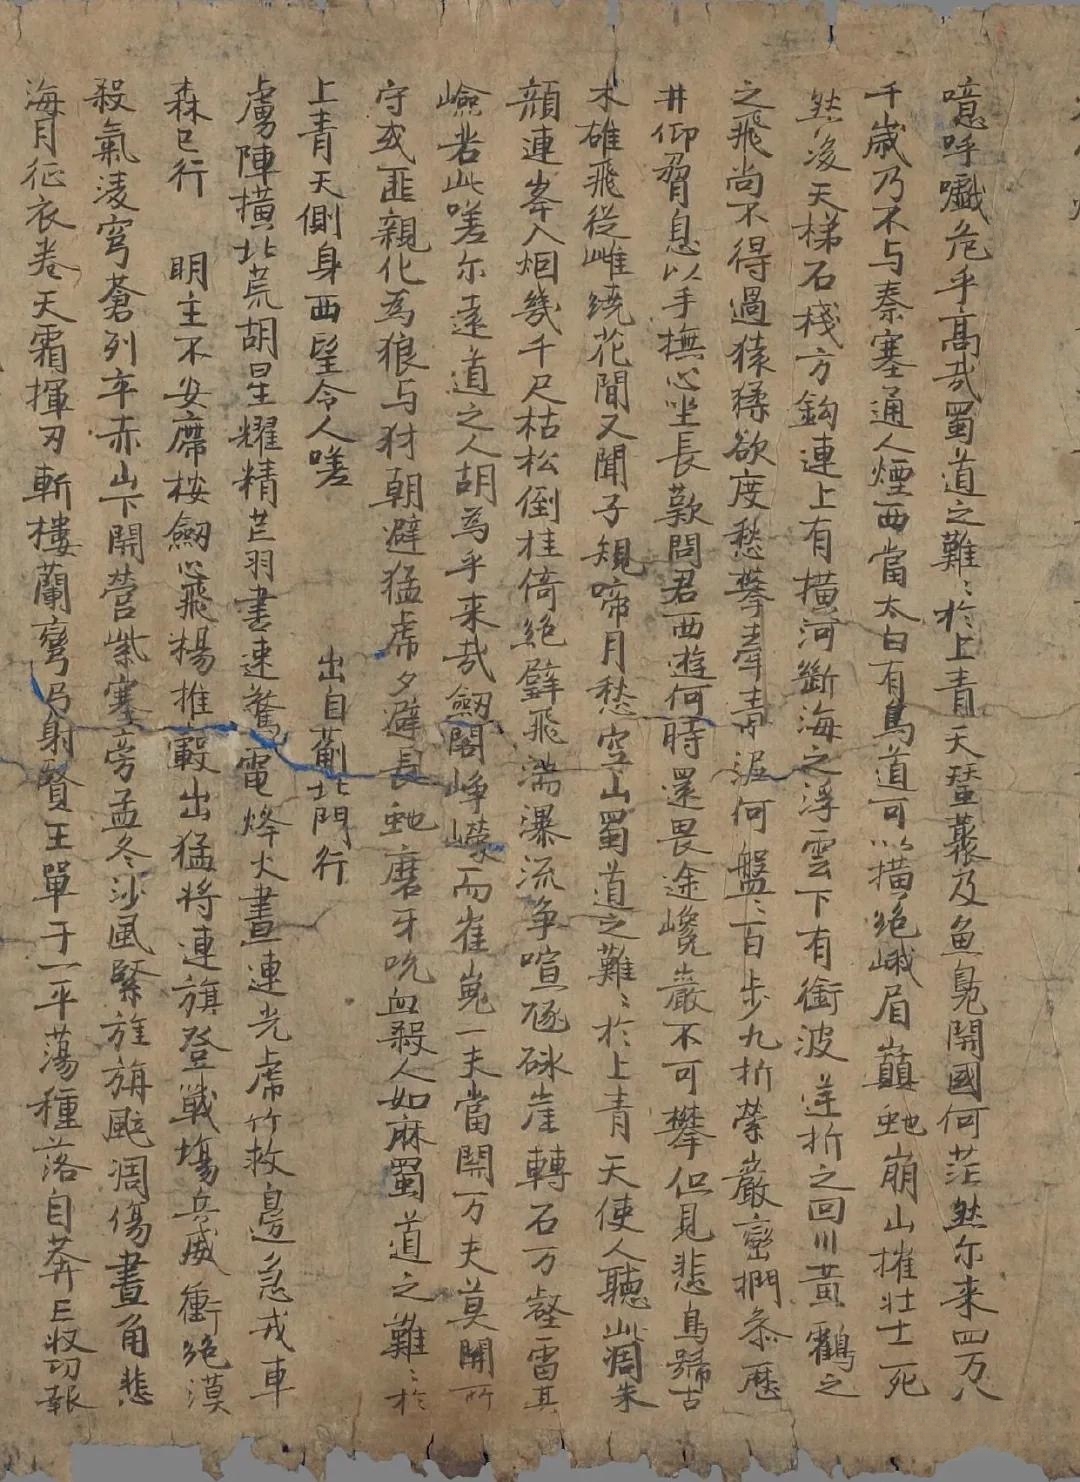 噫呼嚱危乎高哉蜀道之難〻於上青天蠶叢及魚鳧開國何茫然尔来四万八
千歲乃不与秦塞通人煙西當太白有鳥道可以橫絕峨眉巔虵崩山摧壮士死
然後天梯石棧方鈎連上有橫河斷海之浮雲下有衝波逆折之回川黃鶴之
之飛尚不得過猿猱欲度愁攀牽青泥何盤〻百步九折縈巖巒捫叅歷
井仰脅息以手撫心坐長歎問君西遊何時還畏途巉巖不可攀但見悲鳥號古
木雄飛從雌繞花間又聞子規啼月愁空山蜀道之難〻於上青天使人聽此凋朱
顏連峯入烟幾千尺枯松倒挂倚絕壁飛湍瀑流争喧豗砯崖轉石万壑雷其
嶮若此嗟尓遠道之人胡為乎来哉劔閣峥嶸而崔嵬一夫當開万夫莫開所
守或匪親化為狼与犲朝避猛虎夕避長虵磨牙吮血殺人如麻蜀道之難〻於
上青天側身西望令人嗟 出自薊北門行
虜陣橫北荒胡星耀精芒羽書速驚電烽火晝連光虎竹救邊急戎車
森已行 明主不安席桉劔心飛揚推轂出猛將連旗登戰塲兵威衝絕漠
殺氣淩穹蒼列卒赤山下開營紫塞旁孟冬沙風緊旌旗颭凋傷畫角悲
海月征衣卷天霜揮刃斬樓蘭彎弓射賢王單于一平蕩種落自莽亡収功報